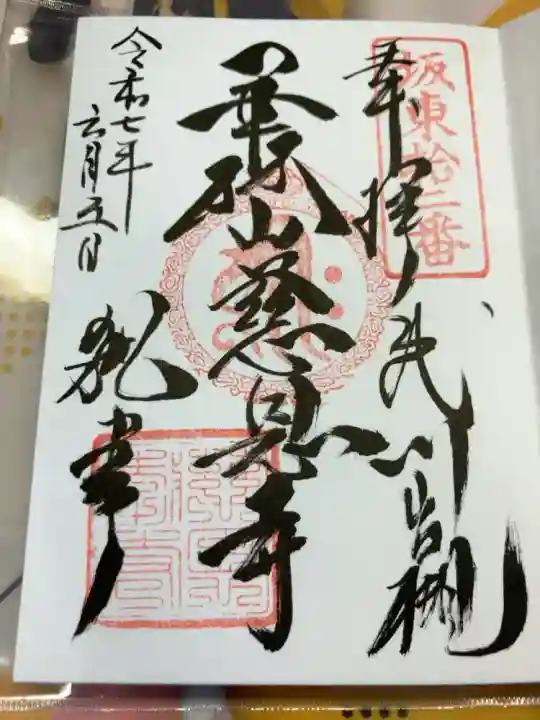 坂東拾二番
奉拝 武州岩槻
華林山慈恩寺
令和七年
六月五日
執事